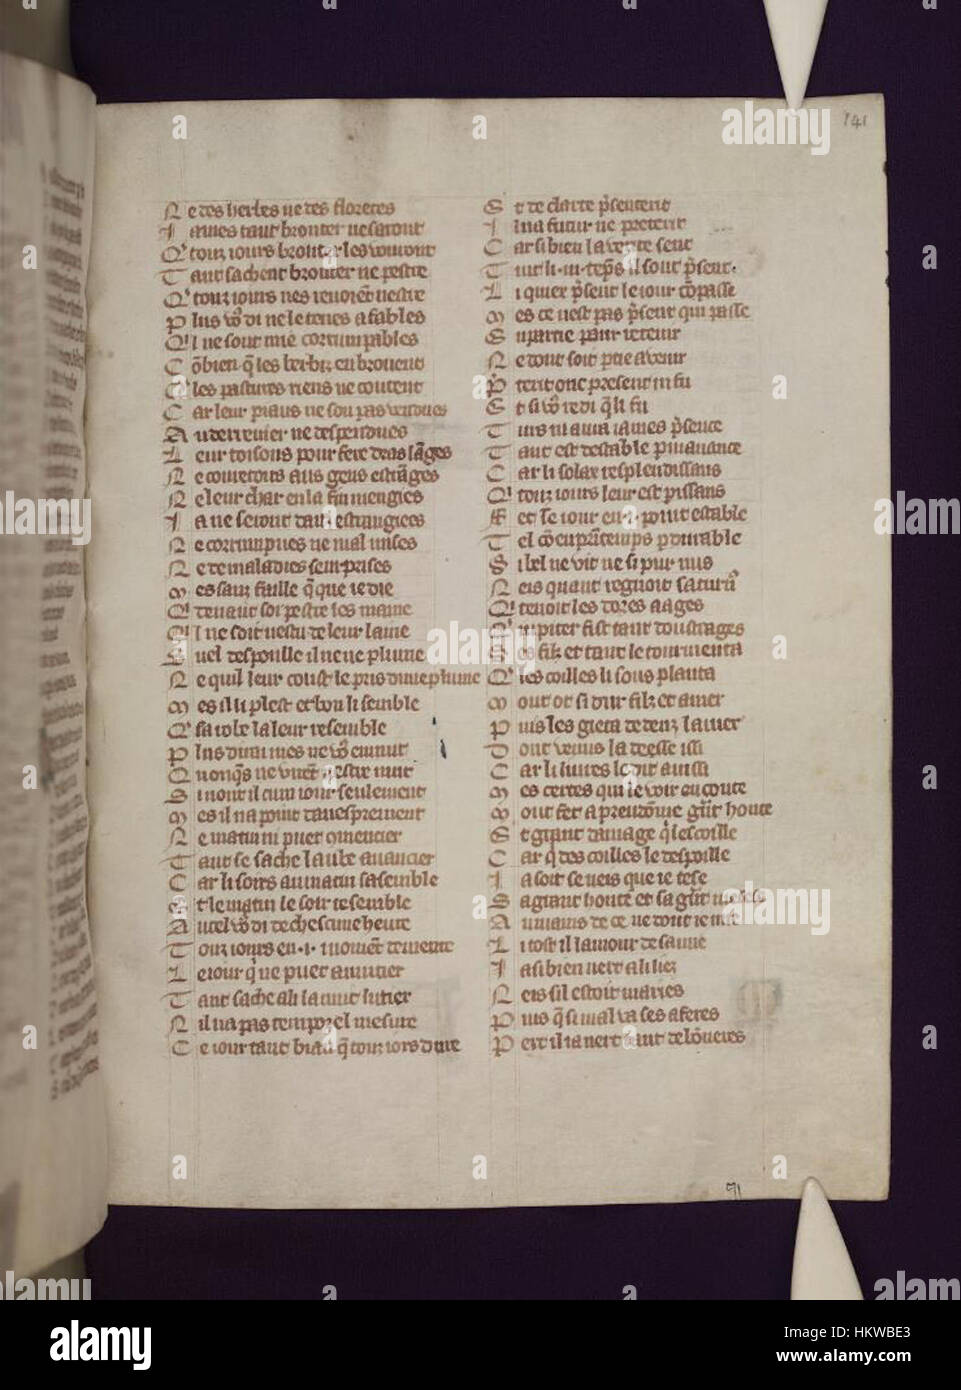 141
N e des herbes ne des floretes
I ames tant brouter ne saront
Q' touz iours brouter les vouront
T ant sachent brouter ne pestre
Q' touz iours nes revoiēt nestre
P lus vo9 di ne le tenes a fables
Q'l ne sont mie corrumpables
C ōbien q̄ les berbiz en broutent
Q' les pastures riens ne coutent
C ar leur piaus ne sōt pas vendues
A u derrenier ne despendues
L eur toisons pour fere dras lāges
N e couvertons aus gens estrāges
N e leur char en la fin mengies
I a ne seront
N e corrumpues ne mal mises
N e de maladies seurprises
M es sanz faille q̄ que ie die
Q' devant soi pestre les maine
Q'l ne soit vestu de leur laine
S nel despoille il ne ne plume
N e quil leur coust le pris dune plume
M es il li plest et bon li semble
Q' sa robe la leur resemble
P lus dirai mes ne vo9 ennuit
Q nonq̄s ne virēt nestre nuit
S i nont il cun iour seulement
M es il na point davesprement
N e matin ni puet 9mencier
T ant se sache laube avancier
C ar li soirs au matin sasemble
E t le matin le soir resemble
A utel vo9 di de chescune heure
T ouz iours en .i. momēt demeure
L e iour q̄ ne puet anuitier
T ant sache a li la nuit luitier
N il na pas temporel mesure
C e iour tant biau q̄ touz iors dure
E t de clarte p̄sentent
I l na futur ne preterit
C ar si bien la verite sent
T uit li .iii. tēps il sont p̄sent.
L i quiex p̄sent le iour cōpasse
M es ce nest pas p̄sent qui passe
E n partie pour
N e dont soit ptie a venir
P reterit onc present ni fu
E t si vo9 redi q̄ li fu
T urs ni aura iames p̄sence
T ant est destable pmanance
C ar li solax resplendissans
Q' touz iours leur est
F et le iour en .i. point estable
T el cō en prītemps pdurable
S i bel ne vit ne si pur nus
N eis quant regnoit saturn9
Q' tenoit les dorez aages
Q' iupiter fist tant doustrages
S es filz et tant le tourmenta
Q' les coilles li sous planta
M out ot si dur filz et amer
P uis les gieta dedenz la mer
D ont venus la deesse issi
C ar li livres le dit aussi
M es certes qui le voir en conte
M out fet a preudōme grāt honte
E t grant damage q̄ lescoille
C ar q̄ des coilles le despoille
I a soit se neis que ie tese
S a grant honte et sa grāt mesese
A u mains de ce ne dout ie mie
L i tost il lamour de samie
I a si bien niert a li liez
N eis sil estoit maries
P uis q̄ si mal va ses aferes
P ert il ia niert tant debōneres
71
alamy
Image ID: HKWBE3
www.alamy.com